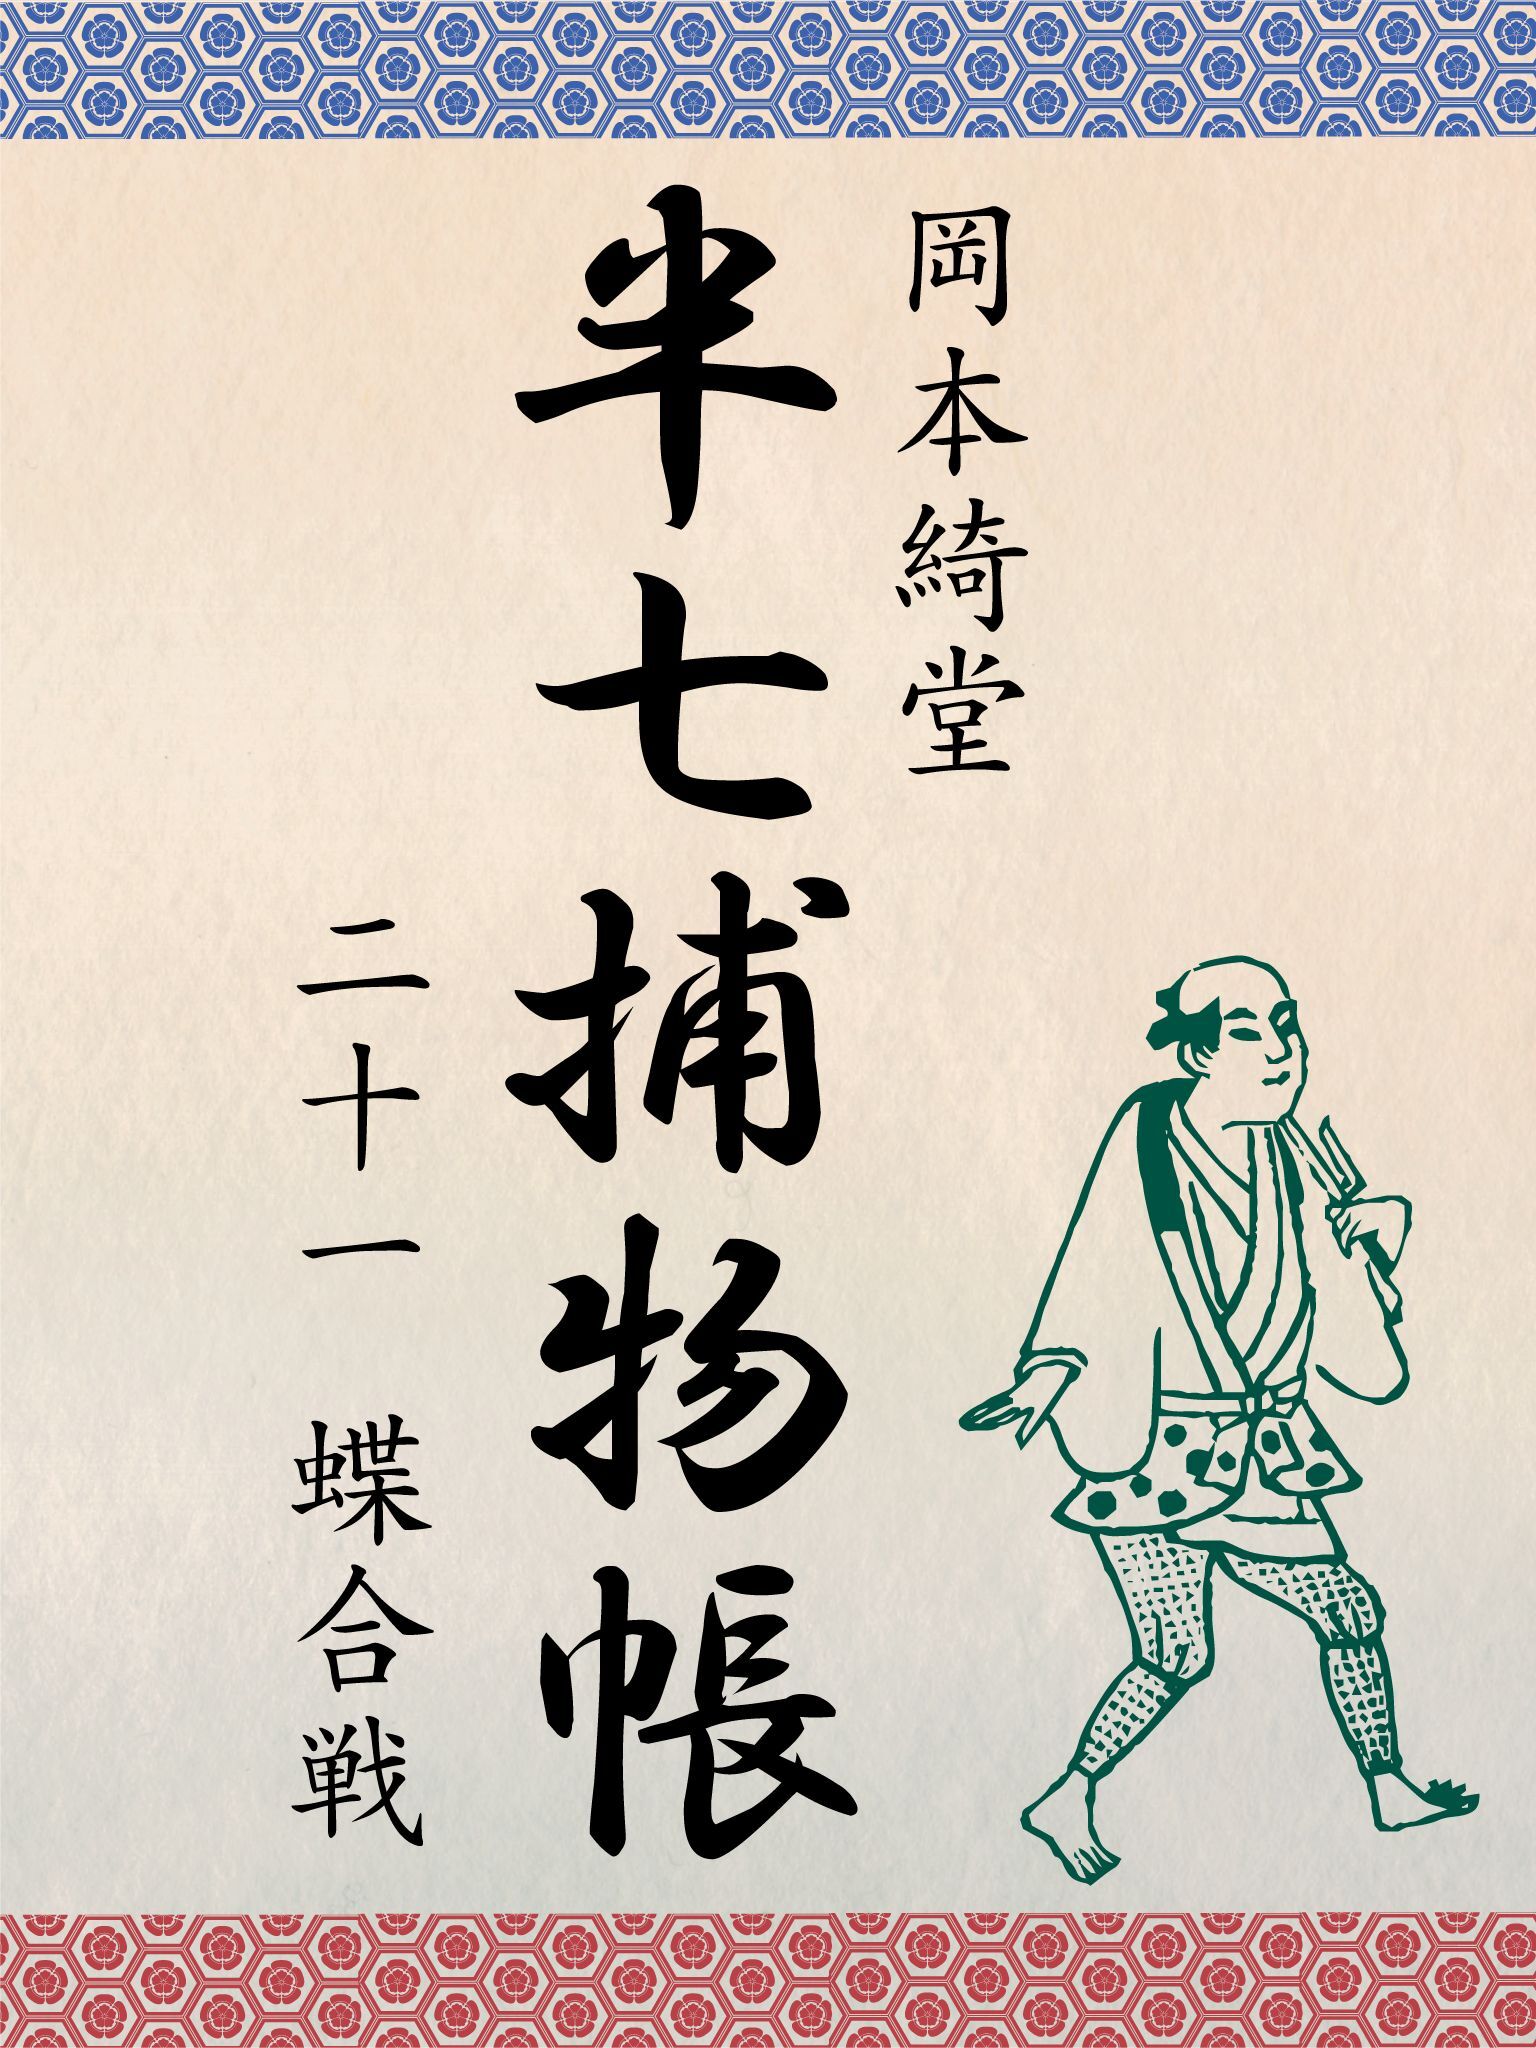 岡本綺堂
半七捕物帳
二十一 蝶合戦